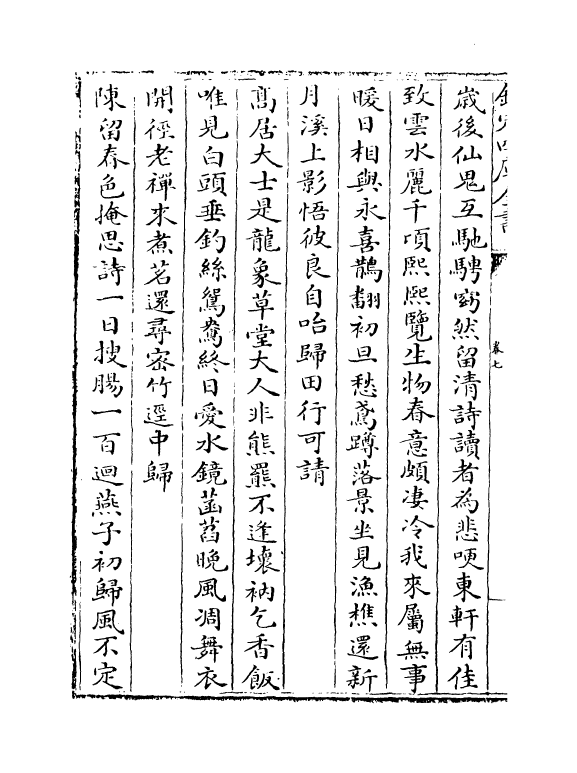 欽定四庫全書
卷七
歲後仙鬼互馳騁窈然留清詩讀者為悲哽東軒有佳
致雲水麗千項熙熙覽生物春意頗淒冷我來屬無事
暖日相與永喜鵲翻初旦愁鳶蹲落景坐見漁樵還新
月溪上影悟彼良自咍歸田行可請
髙居大士是龍象草堂大人非熊羆不逢壞衲乞香飯
唯見白頭垂釣絲鴛鴦終日愛水鏡菡萏晚風凋舞衣
開徑老禪來煮茗還尋宻竹逕中歸
陳留春色撩思詩一日搜腸一百迴燕子初歸風不定